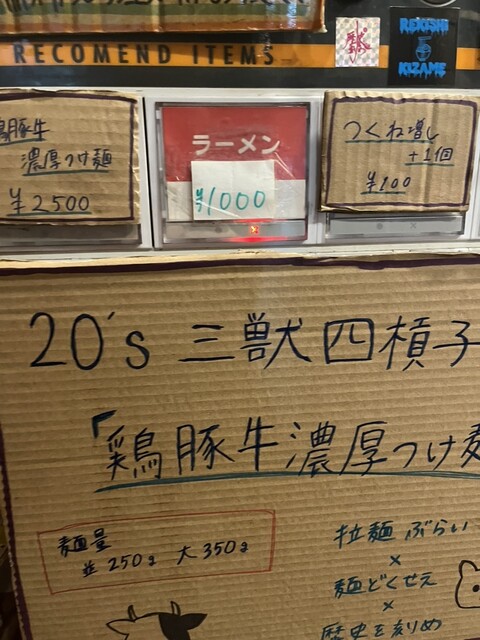 RECOMEND ITEMS
REKISHI
KIZAME
鶏豚牛
濃厚つけ麺
¥2500
ラーメン
¥1000
つくね増し
+1個
¥100
20's 三獣四槓子
「鶏豚牛濃厚つけ麺
麺量
並250g 大350g
拉麺 ぶらい
×
麺どくせえ
×
歴史を刻め